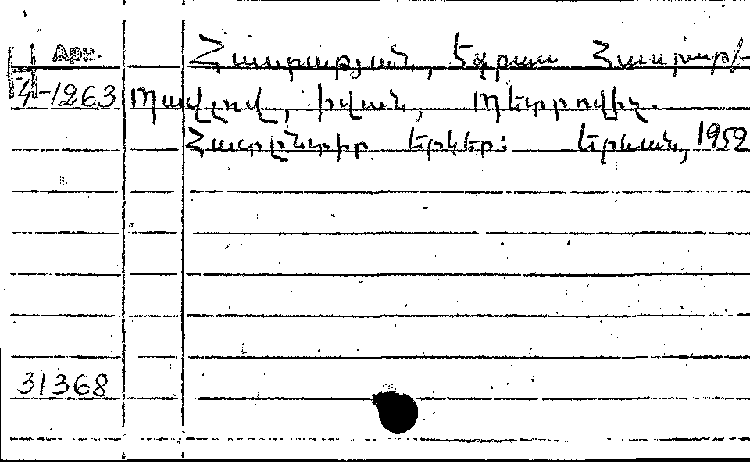 Арм. Հասրաթյան, Եզրաս Հասրաթի
4-1263 Պավլով, Իվան, Պետրովիչ.
Հատընտիր երկեր: Երևան, 1952
31368